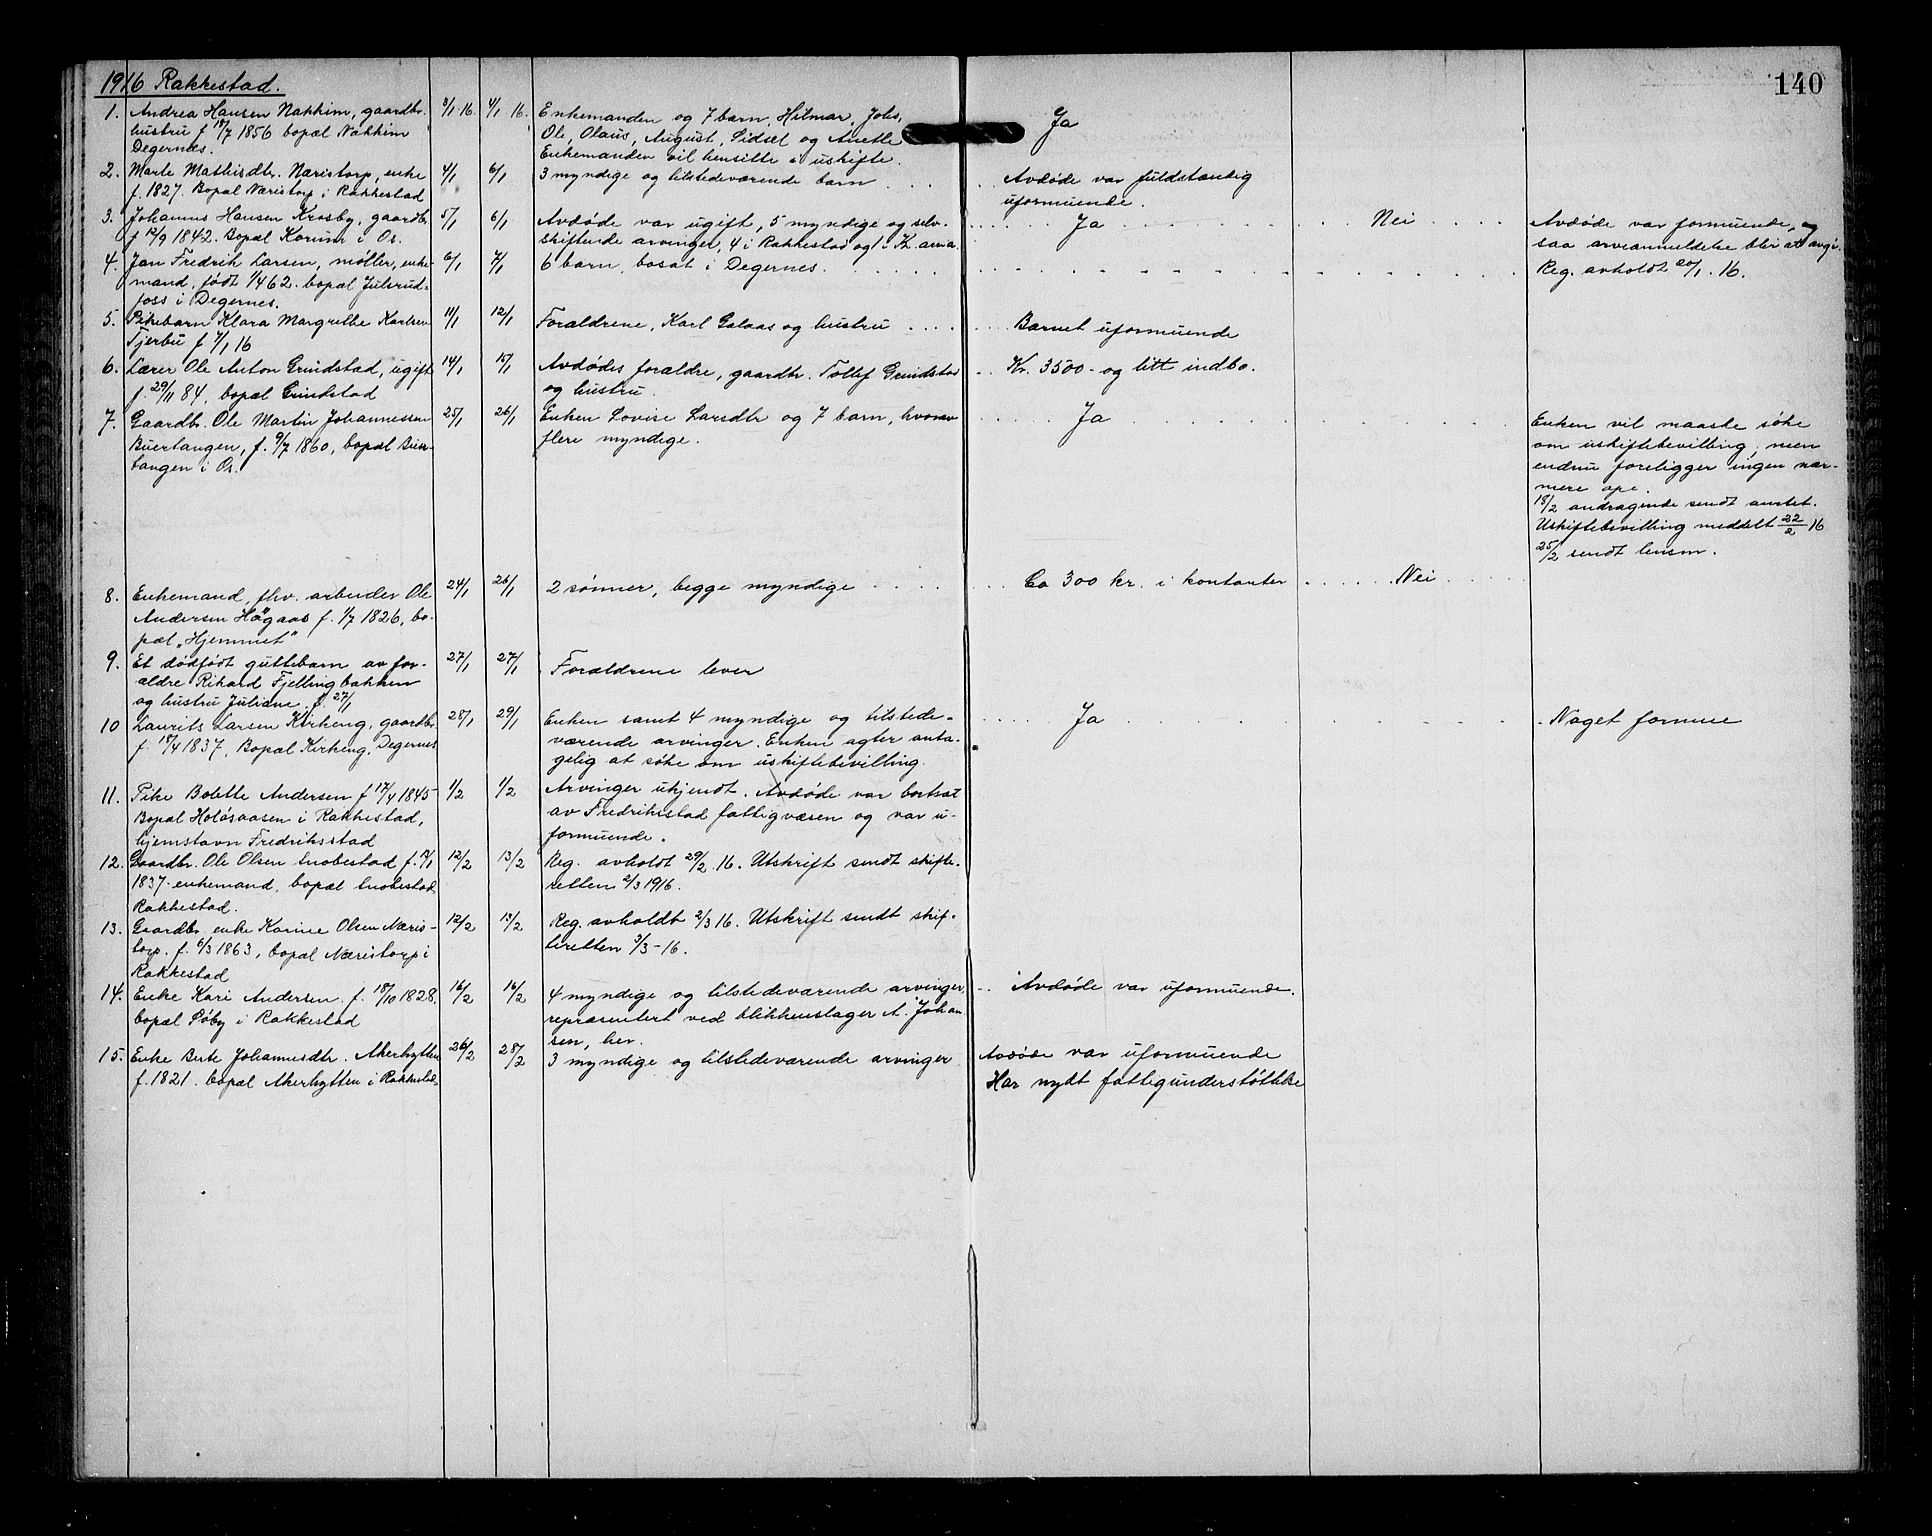 1916 Rakkestad.
140
1. Andrea Hansen Nakkim, gaardbr. 3/1 16. 4/1 16. Enkemanden og 7 barn, Hilmar, Johs, Ja
hustru f 18/7 1856 bopæl Nakkim Ole, Olaus, August, Sidsel og Anette
Degernes. Enkemanden vil hensitte i uskifte.
2. Marte Mathisdtr. Næristorp, enke 4/1 6/1 3 myndige og tilstedeværende barn Avdøde var fuldstændig
f. 1827. Bopæl Næristorp i Rakkestad uformuende.
3. Johannes Hansen Krosby, gaardb. 5/1 6/1 Avdøde var ugift, 5 myndige og selv- Ja Nei Avdøde var formuende, og
f 12/9 1842. Bopæl Korum i Os. skiftende arvinger, 4 i Rakkestad og 1 i Kr.ania. saa arveanmeldelse blir at avgi.
4. Jan Fredrik Larsen, møller, enke- 6/1 7/1 6 barn, bosat i Degernes. Reg. avholdt 20/1. 16.
mand, født 1/4 62. bopæl Julsrud-
foss i Degernes.
5. Pikebarn Klara Margrethe Karlsen 11/1 12/1 Forældrene, Karl Galaas og hustru Barnet uformuende
Tjerbu f 7/1 16
6. Lærer Ole Anton Grindstad, ugift 14/1 15/1 Avdødes forældre, gaardbr. Tollef Grindstad Kr. 3500- og litt indbo.
f. 29/11 84, bopæl Grindstad og hustru.
7. Gaardbr. Ole Martin Johannessen 25/1 26/1 Enken Lovise Larsdtr og 7 barn, hvorav Ja Enken vil maaske søke
Buertangen, f. 9/7 1860, bopæl Buer- flere myndige. om uskiftebevilling, men
tangen i Os. endnu foreligger ingen nær-
mere
18/2 andragende sendt amtet.
Uskiftebevilling meddelt 22/2 16
25/2 sendt lensm.
8. Enkemand, fhv. arbeider Ole 24/1 26/1 2 sønner, begge myndige Ca 300 kr. i kontanter Nei
Andersen Høgaas f. 1/7 1826, bo-
pæl „Hjemmet"
9. Et dødfødt guttebarn av for- 27/1 27/1 Forældrene lever
ældre Rikard Fjellingbakken
og hustru Juliane f. 27/1
10 Laurits Larsen Kirkeng, gaardb. 28/1 29/1 Enken samt 4 myndige og tilstede- Ja Noget formue
f. 18/4 1837, Bopæl Kirkeng, Degernes værende arvinger. Enken agter anta-
gelig at søke om uskiftebevilling.
11. Pike Bolette Andersen f 17/4 1845 1/2 1/2 Arvinger ukjendt. Avdøde var bortsat
Bopæl Holøsaasen i Rakkestad, av Fredriksstad fattigvæsen og var u-
hjemstavn Fredriksstad formuende.
12. Gaardbr. Ole Olsen f. 1837- enkemand, bopæl 12/2 13/2 Reg. avholdt 29/2. 16. Utskrift sendt skifte-
Rakkestad. retten 2/3 1916.
13. Gaardbr. enke Karine Olsen Næris- 12/2 13/2 Reg. avholdt 2/3 16. Utskrift sendt skif-
torp. f. 6/3 1863, bopæl Næristorp i teretten 3/3-16.
Rakkestad
14. Enke Kari Andersen. f. 18/10 1828, 16/2 16/2 4 myndige og tilstedeværende arvinger, Avdøde var uformuende.
bopæl Søby i Rakkestad repræsentert ved blikkenslager A. Johan-
sen, her.
15. Enke Berte Johannesdtr. Akerhytten 26/2 28/2 3 myndige og tilstedeværende arvinger Avdøde var uformuende
f. 1821. bopæl Akerhytten i Rakkestad Har nydt fattigunderstøttelse